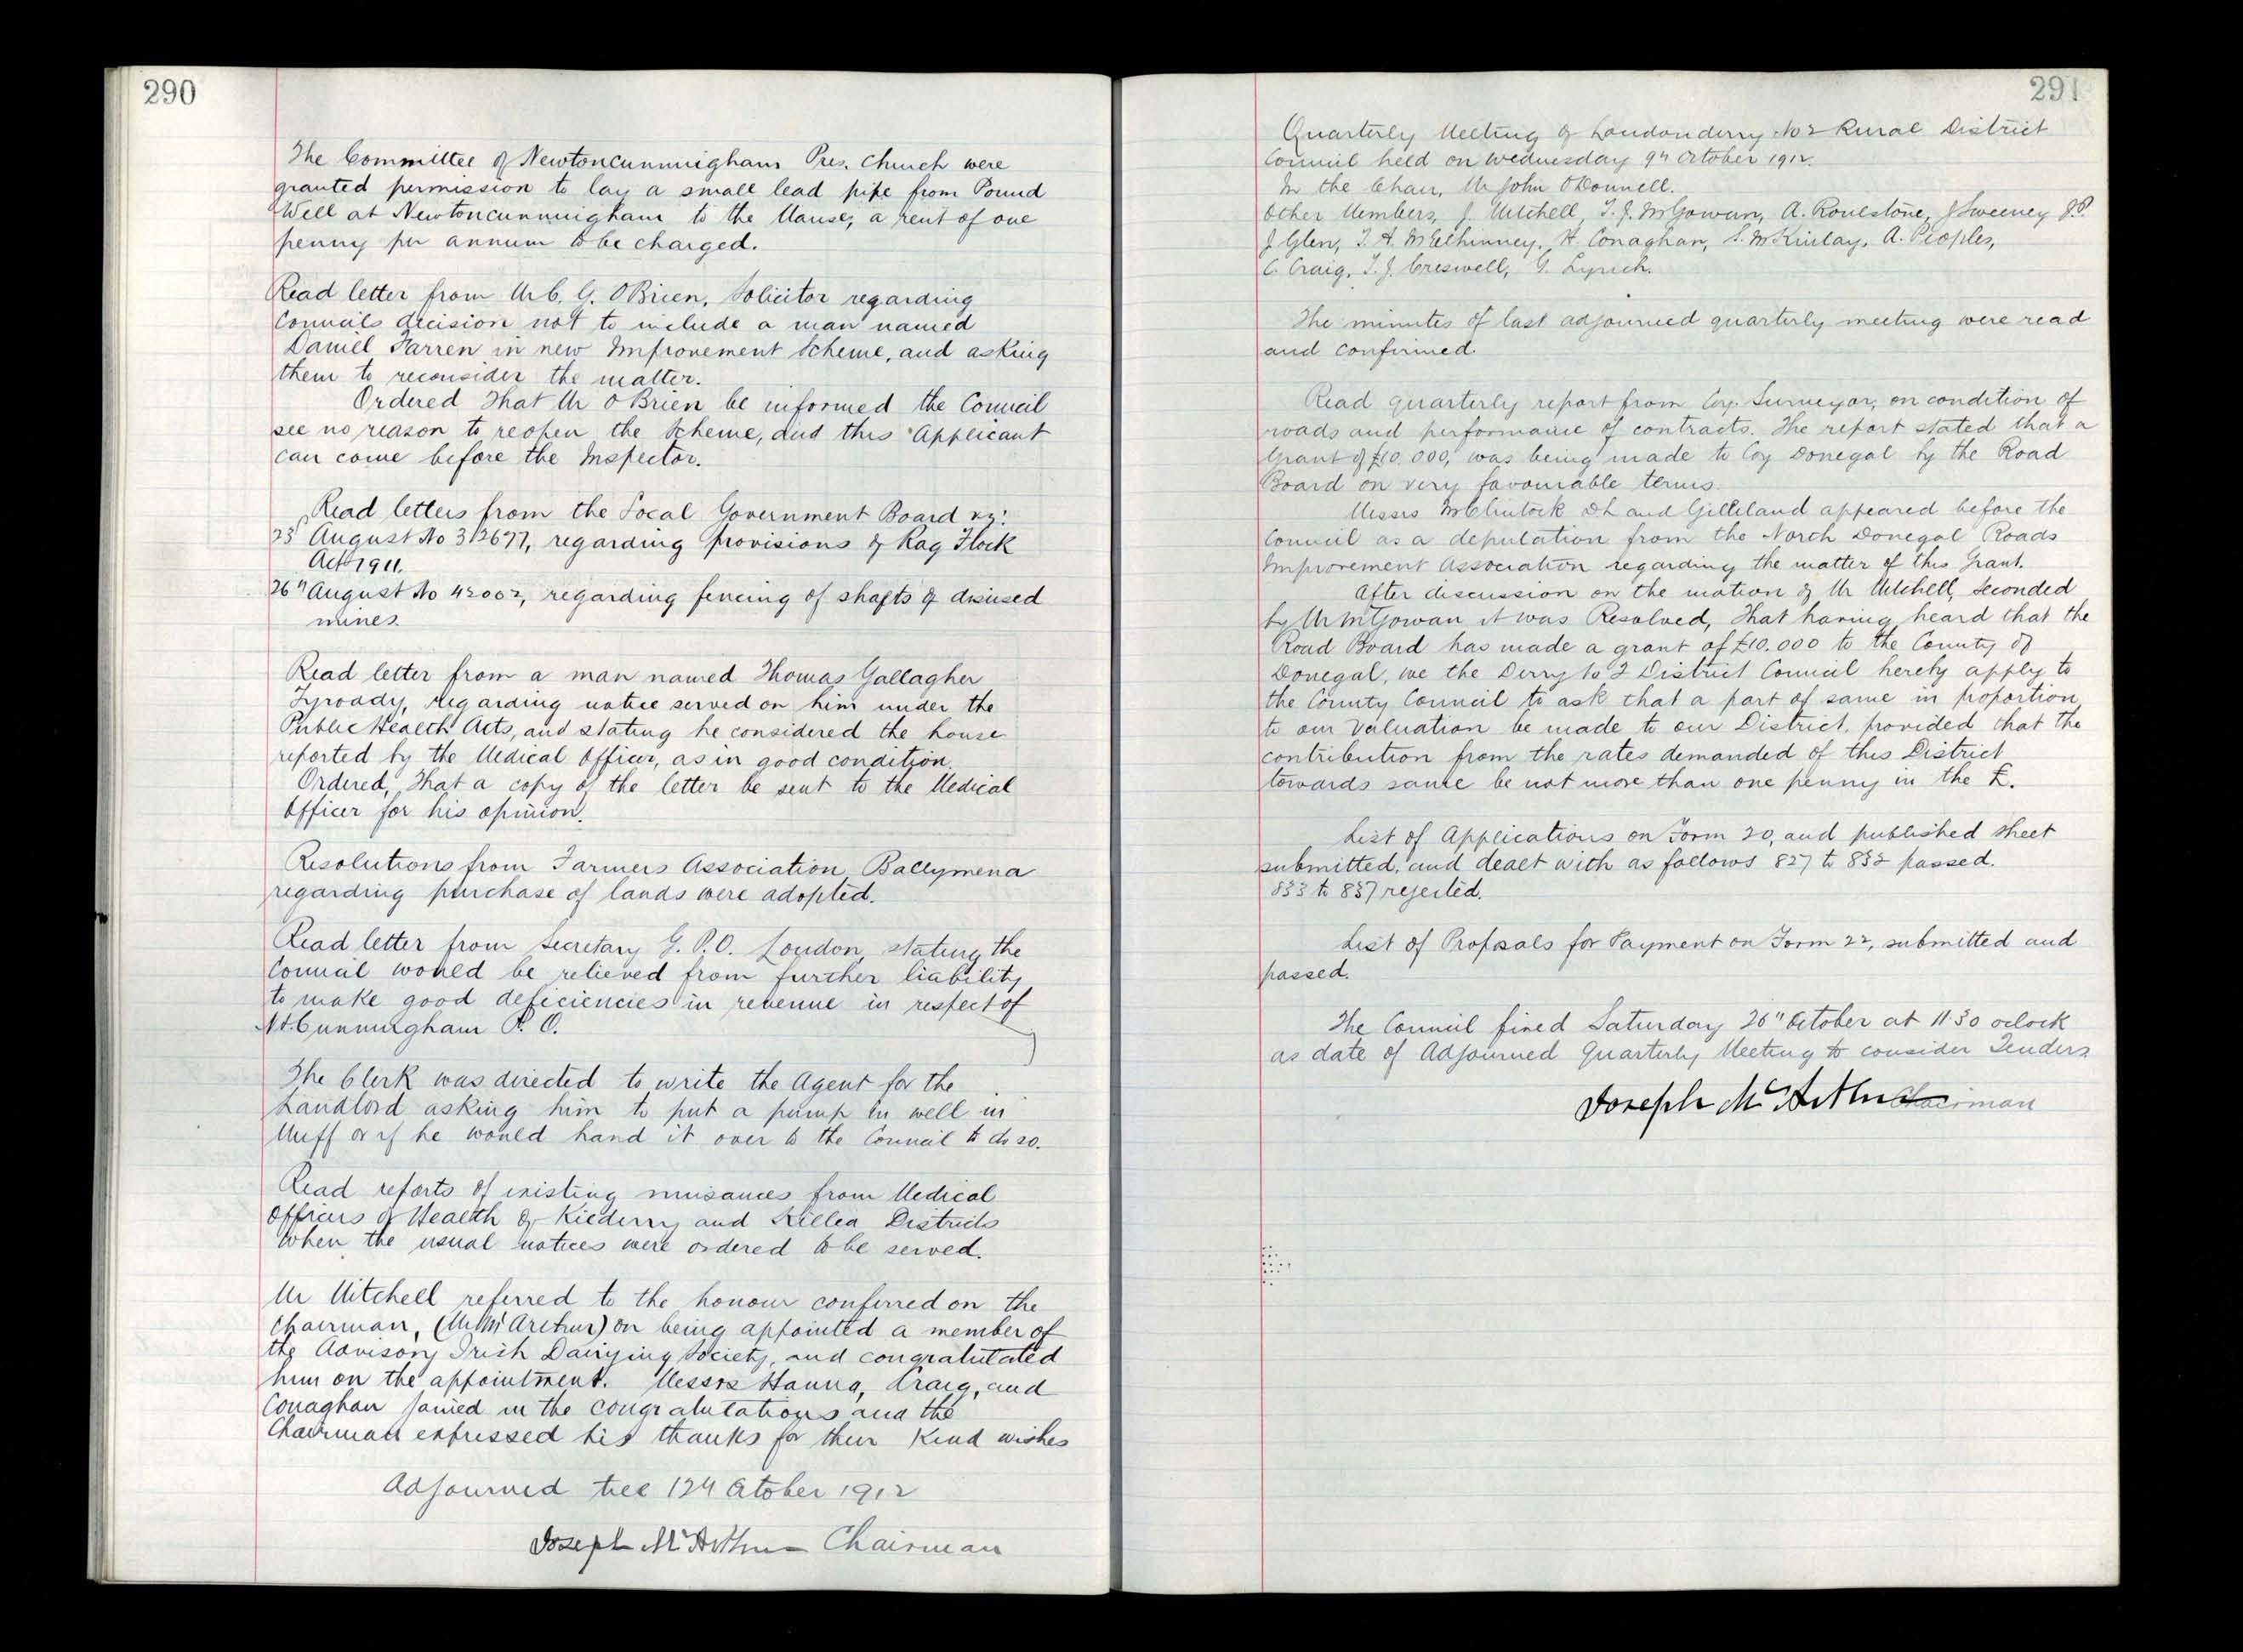 290
The Committee of Newtoncunningham Pres. Church were
granted permission to lay a small lead pipe from Pound
Well at Newtoncunningham to the Manse, a rent of one
penny per annum to be charged.
Read letter from Mr C. G. O'Brien, Solicitor regarding
Councils decision not to include a man named
Daniel Farren in new Improvement Scheme, and asking
them to reconsider the matter.
Ordered That Mr O'Brien be informed the Council
see no reason to reopen the Scheme, and this Applicant
can come before the Inspector.
Read letters from the Local Government Board viz:
23rd August No 312677, regarding provisions of Rag Flock
Act 1911.
26th August No 42002, regarding fencing of shafts of disused
mines.
Read letter from a man named Thomas Gallagher
Tyroady, regarding notice served on him under the
Public Health Acts, and stating he considered the house
reported by the Medical Officer, as in good condition.
Ordered, That a copy of the letter be sent to the Medical
Officer for his opinion.
Resolutions from Farmers Association Ballymena
regarding purchase of lands were adopted.
Read letter from Secretary G. P. O. London, stating the
Council would be relieved from further liability
to make good deficiencies in revenue in respect of
Nt. Cunningham P. O.
The Clerk was directed to write the Agent for the
Landlord asking him to put a pump in well in
Muff or if he would hand it over to the Council to do so.
Read reports of existing nuisances from Medical
Officers of Health of Kilderry and Killea Districts
when the usual notices were ordered to be served.
Mr Mitchell referred to the honour conferred on the
Chairman, (Mr McArthur) on being appointed a member of
the Advisory Irish Dairying Society, and congratulated
him on the appointment. Messrs Hanna, Craig, and
Conaghan joined in the congratulations and the
Chairman expressed his thanks for their Kind wishes
Adjourned till 12th October 1912
Joseph McArthur Chairman
291
Quarterly Meeting of Londonderry No 2 Rural District
Council held on Wednesday 9th October 1912.
In the Chair, Mr John O'Donnell.
Other Members, J. Mitchell, T. J. McGowan, A. Roulstone, J Sweeney J.P.
J Glen, T. A. McElhinney, H. Conaghan, S. McKinlay, A. Peoples,
C. Craig, T. J. Creswell, G. Lynch.
The minutes of last adjourned quarterly meeting were read
and confirmed.
Read quarterly report from Coy. Surveyor, on condition of
roads and performance of contracts. The report stated that a
Grant of £10.000, was being made to Coy Donegal by the Road
Board on very favourable terms.
Messrs McClintock D.L and Gilliland appeared before the
Council as a deputation from the North Donegal Roads
Improvement Association regarding the matter of this Grant.
After discussion on the motion of Mr Mitchell, seconded
by Mr McGowan it was Resolved, That having heard that the
Road Board has made a grant of £10.000 to the County of
Donegal, we the Derry No 2 District Council hereby apply to
the County Council to ask that a part of same in proportion
to our Valuation be made to our District, provided that the
contribution from the rates demanded of this District
towards same be not more than one penny in the £.
List of Applications on Form 20, and published sheet
submitted, and dealt with as follows 827 to 832 passed.
833 to 837 rejected.
List of Proposals for Payment on Form 22, submitted and
passed.
The Council fixed Saturday 26th October at 11 30 oclock
as date of Adjourned Quarterly Meeting to consider Tenders
Joseph McArthur Chairman